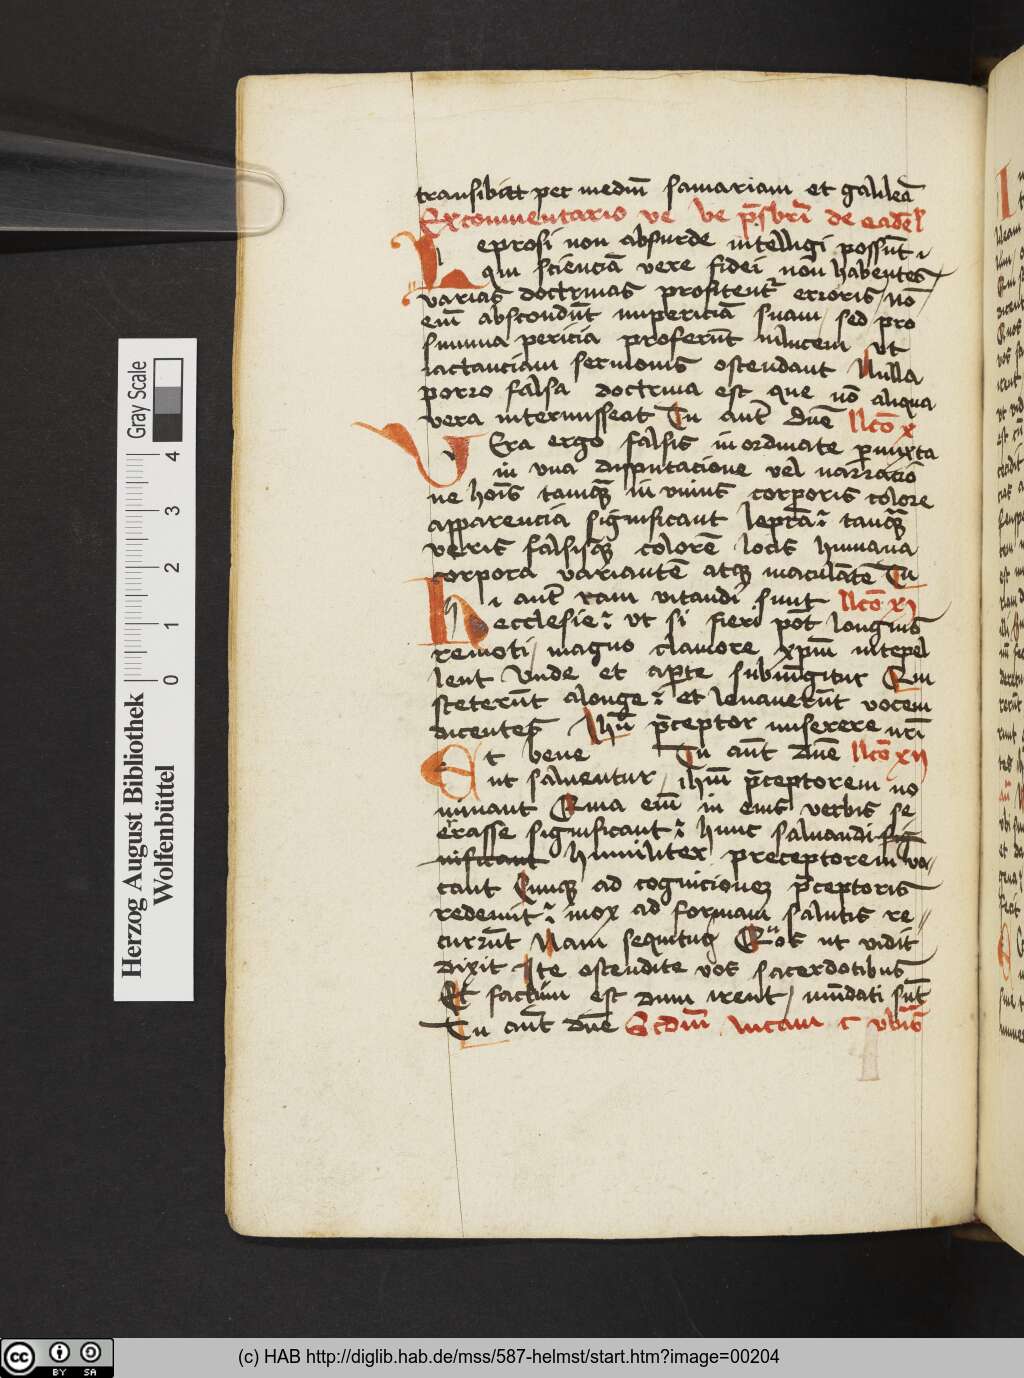 transibat per mediū samariam et galileā
Ex commentario ve be p̄sbri de eadē l
Leprosi non absurde intelligi possūt
qui scienciā vere fidei non habentes
varias doctrinas profitent erroris / nō
eiū abscondūt impericiā suam / sed pro
summa pericia proferūt in lucem ut
iactanciam sermonis ostendant Nulla
porro falsa doctrina est que nō aliqua
vera intermisseat Tu autē dn̄e llcō x
Vera ergo falsis inordinate permixta
in una disputacione vel narracio
ne hoīs tamqꝫ in unius corporis colore
apparencia significant leprā tanqꝫ
veris falsisqꝫ colorē locis humana
corpora variantē atqꝫ maculātē Tu
Hi autē tam vitandi sunt llcō xi
ecclesie ut si fieri pōt longius
remoti / magno clamore xp̄m intepel
lent Vnde et aperte subiūgitur Qui
steterūt alonge et levaverūt vocem
dicentes Ihū p̄ceptor miserere nrī
Et bene Tu aūt dn̄e llcō xii
ut salventur / ihm̄ p̄ceptorem no
minant Quia eiū in eius verbis se
errasse significant hunc salvandi sig
nificant humiliter preceptorem vo
cant Cumqꝫ ad cognicionem p̄ceptoris
redeunt mox ad formam salutis re
currūt Nam sequitur Quos ut vidit
dixit Ite ostendite vos sacerdotibus
Et factum est dum irent / mūdati sūt
Tu aūt dn̄e Scdm̄ lucam
Herzog August Bibliothek
Wolfenbüttel
0 1 2 3 4
Gray Scale
cc BY SA
(c) HAB http://diglib.hab.de/mss/587-helmst/start.htm?image=00204